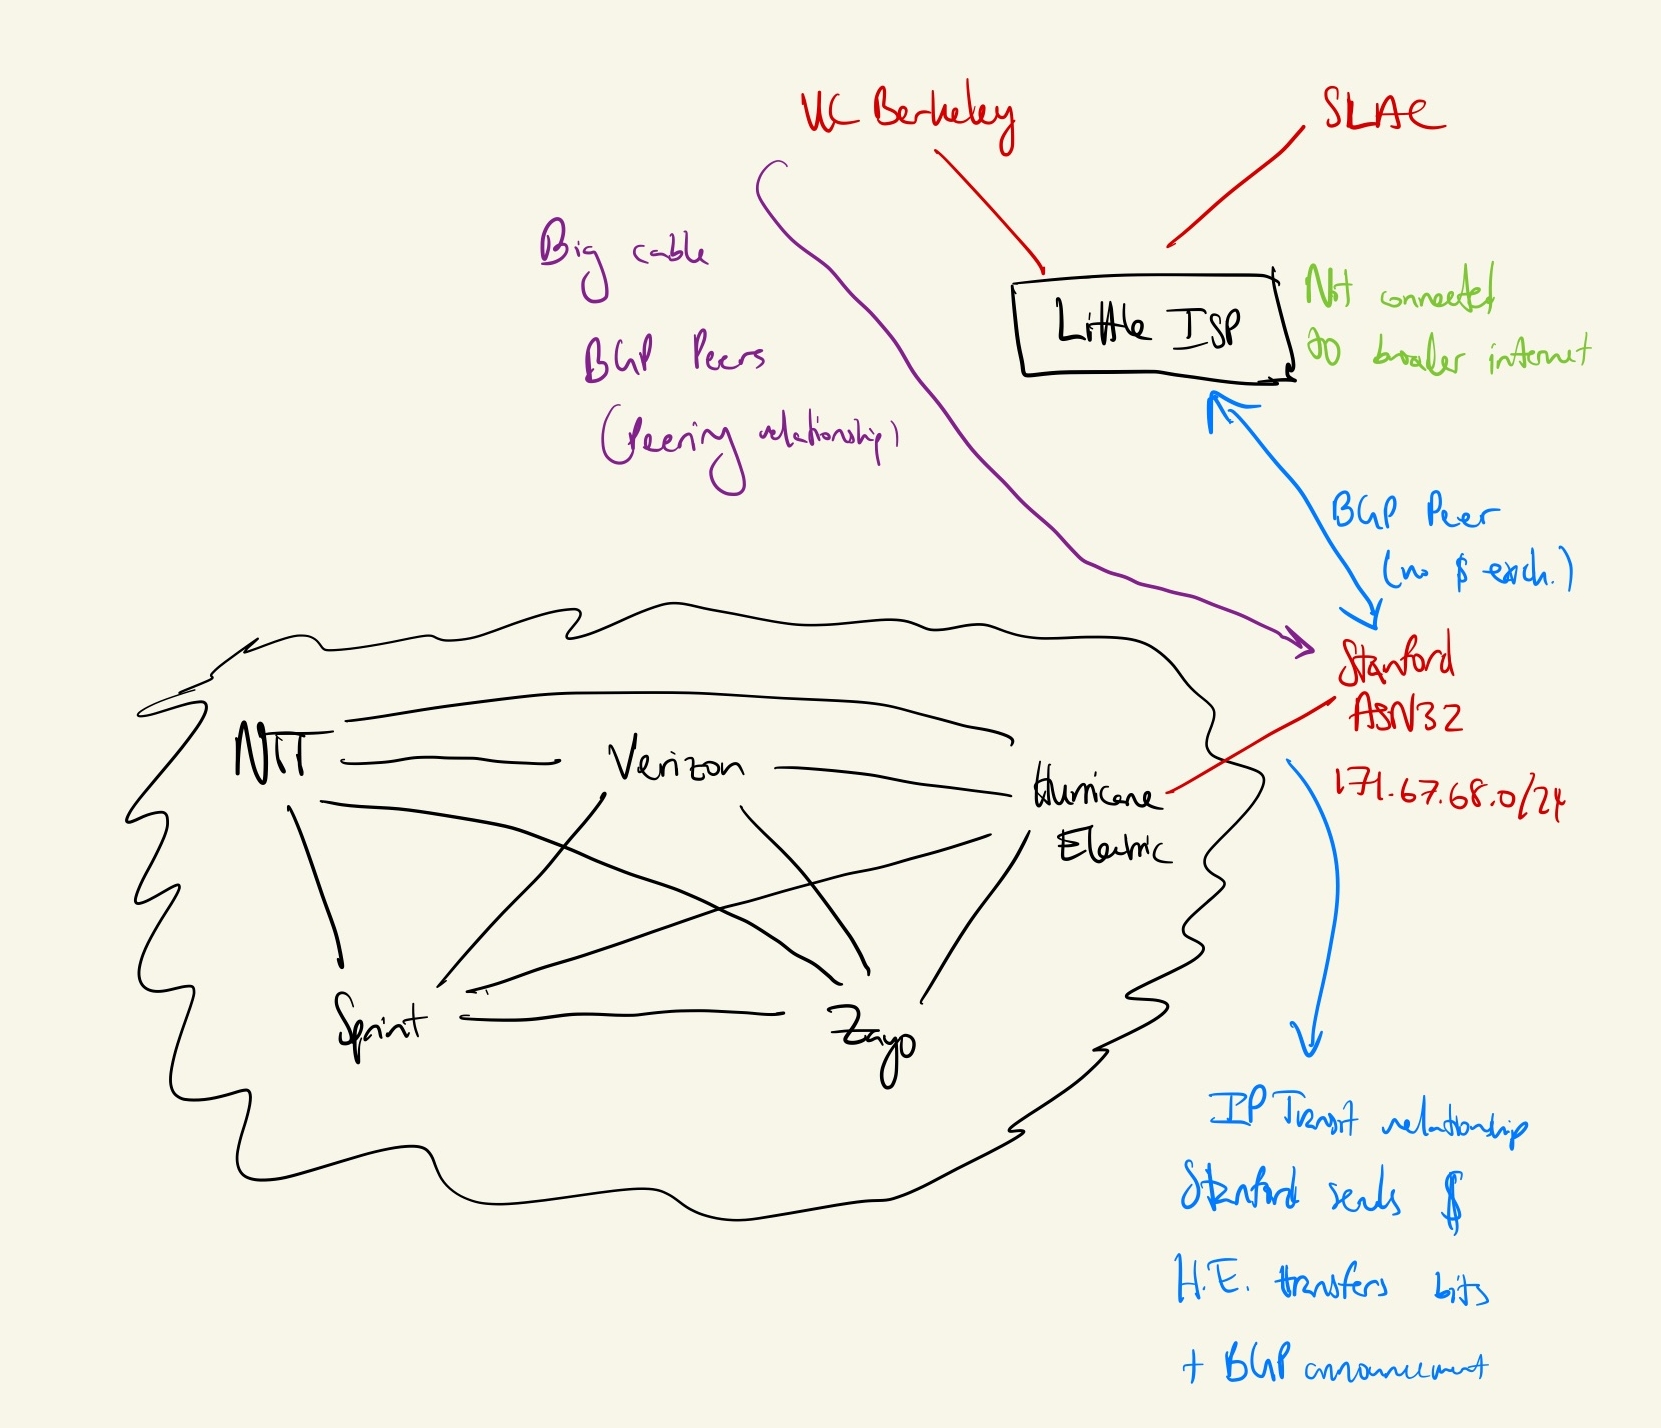 UC Berkeley
SLAC
Big cable
BGP Peers
(Peering relationship)
Little ISP
Not connected
to broader internet
BGP Peer
(no $ exch.)
Stanford
ASN32
171.67.68.0/24
NTT
Verizon
Hurricane
Electric
Sprint
Zayo
IP Transit relationship
Stanford sends $
H.E. transfers bits
+ BGP announcement